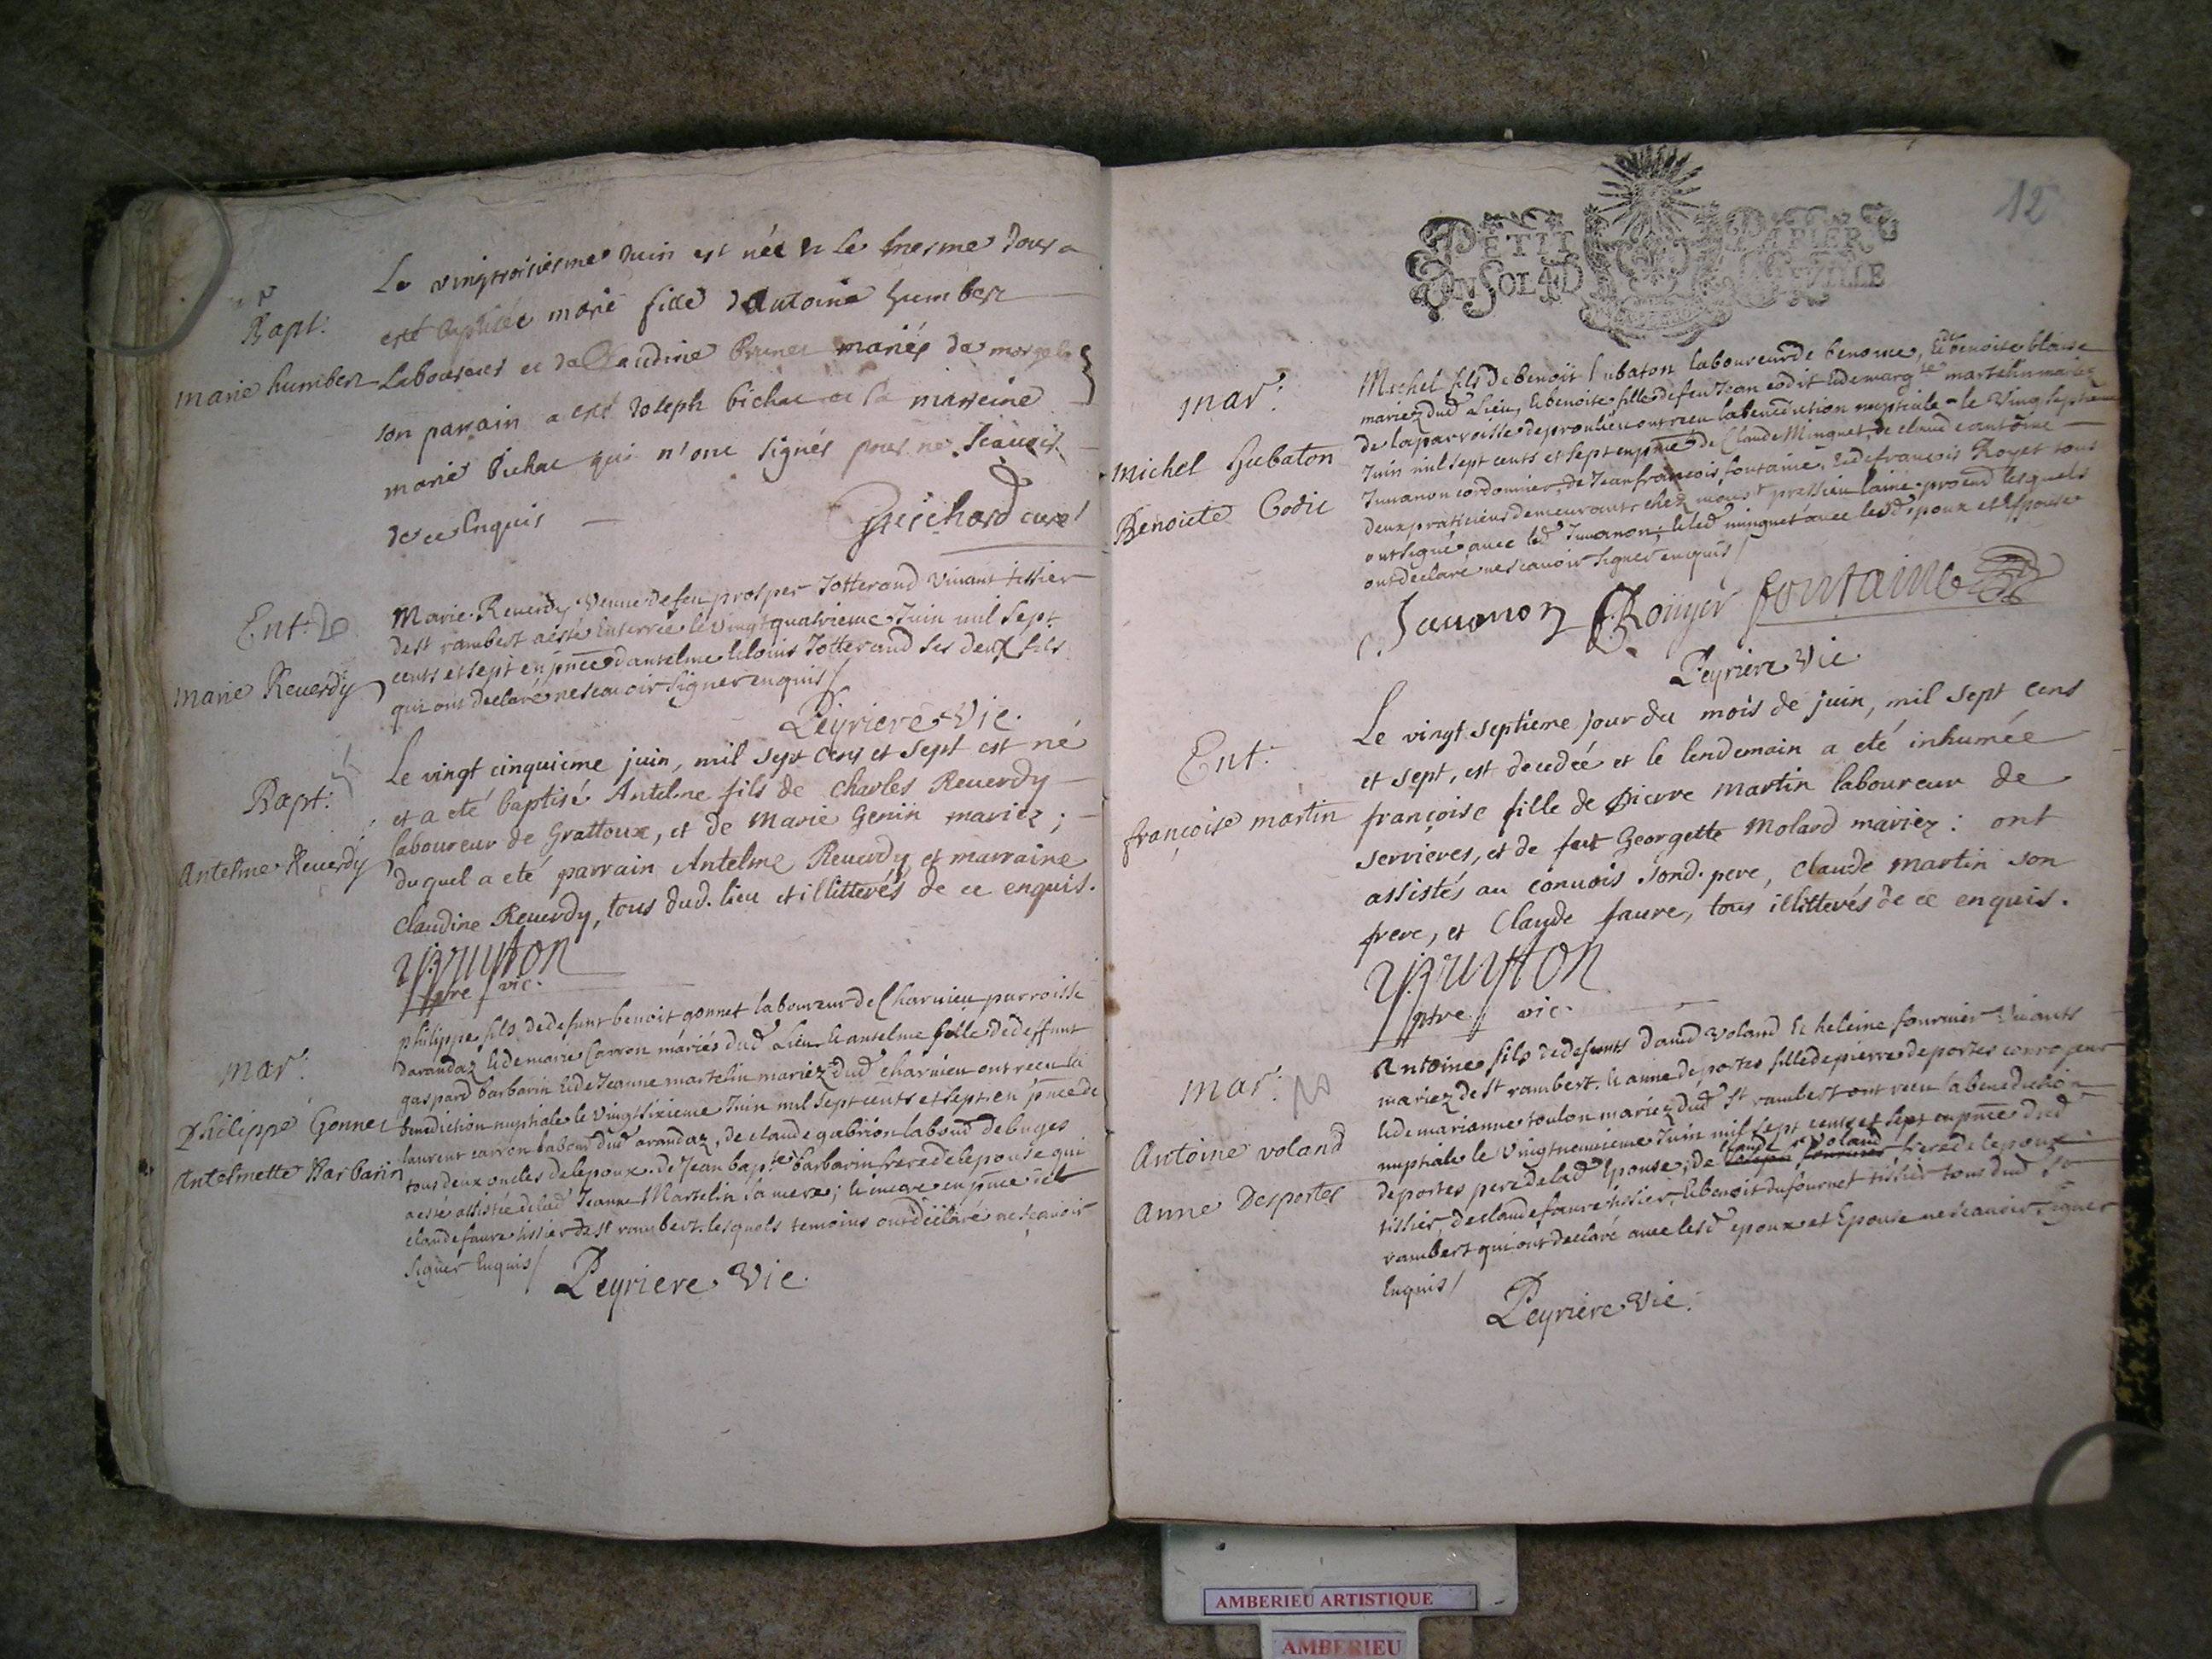 Bapt:
marie humbert
Le vingtroisiesme Juin est née & le mesme Jour a
esté baptisée marie fille d'Antoine humbert
Laboureur et de Claudine Brunet mariés de
son parrain a esté Joseph bichat et la marreine
marie bichat qui n'ont signés pour ne scavoir
de ce Enquis
Guichard curé
Ent:
marie Reuerdy
Marie Reuerdy veuue de feu prosper Jotterand viuant tissier
de st rambert a esté Enterrée le vingt quatrieme Juin mil sept
cents et sept en pnce d'antelme & louis Jotterand ses deux fils
qui ont declaré ne scauoir signer enquis /
Peyriere Vic.
Bapt:
Antelme Reuerdy
Le vingt cinquieme juin, mil sept cens et sept est né
et a eté baptisé Antelme fils de Charles Reuerdy
laboureur de Grattoux, et de Marie Genin mariez ;
duquel a eté parrain Antelme Reuerdy, et marraine
Claudine Reuerdy, tous dud. lieu et illitterés de ce enquis.
Bruyson
ptre vic.
mar:
Philippe Gonnet
Antelmette Barbarin
philippe fils de defunt benoit gonnet laboureur de Charuieu parroisse
darandaz & de marie Carron mariés dud Lieu & antelme fille de deffunt
gaspard barbarin & de Jeanne martelin mariez dud charuieu ont receu la
benediction nuptiale le vingt sixieme Juin mil sept cents et sept en pnce de
laurent carron labour dud arandaz, de claude gabrion labour de buges
tous deux oncles de lepoux, de Jean bapte barbarin frere de lepouse qui
a esté assistée de lad Jeanne Martelin sa mere; & encore en pnce de
claude faure tissier de st rambert. lesquels temoins ont declaré ne scauoir
signer Enquis /
Peyriere Vic.
12
PETIT PAPIER
UN SOL 4 D LA FEVILLE
mar:
Michel Gubaton
Benoite Codit
Michel fils de benoit Gubaton laboureur de benonce, & de benoite blaise
mariez dud Lieu, & benoite fille de feu Jean codit & de margte martelin mariez
de la parroisse de proulieu ont receu la benediction nuptiale le vingt septieme
Juin mil sept cents et sept en pnce de Claude Minguet, de claude antoine
Juuanon cordonnier, de Jean francois fontaine, & de francois Royet tous
deux praticiens demeurants chez mons pressieu laine procud lesquels
ont signé auec led Juuanon, & led minguet auec lesd epoux et Epouse
ont declaré ne scauoir signer enquis /
C. Jauanon Roüyer fontaine
Peyriere Vic
Ent:
françoise martin
Le vingt septieme jour du mois de juin, mil sept cens
et sept, est decedeé et le lendemain a eté inhumée
françoise fille de Pierre Martin laboureur de
servieres, et de fut Georgette Molard mariez : ont
assistés au conuois sond. pere, Claude Martin son
frere, et Claude faure, tous illitterés de ce enquis.
Bruyson
ptre vic.
mar:
Antoine voland
Anne Desportes
Antoine fils de defunts dauid voland & heleine fournier viuants
mariez de st rambert. & anne deportes fille de pierre deportes corroyeur
& de marianne toulon mariez dud St rambert ont receu la benediction
nuptiale le vingtneuuieme Juin mil sept cents et sept en pnce dud
deportes pere de lad Epouse, de Claude Voland frere de lepoux
tissier, de claude faure tissier, & benoit dufournet tissier tous dud St
rambert qui ont declaré auec lesd epoux et Epouse ne scauoir signer
Enquis /
Peyriere Vic.
AMBERIEU ARTISTIQUE
AMBERIEU